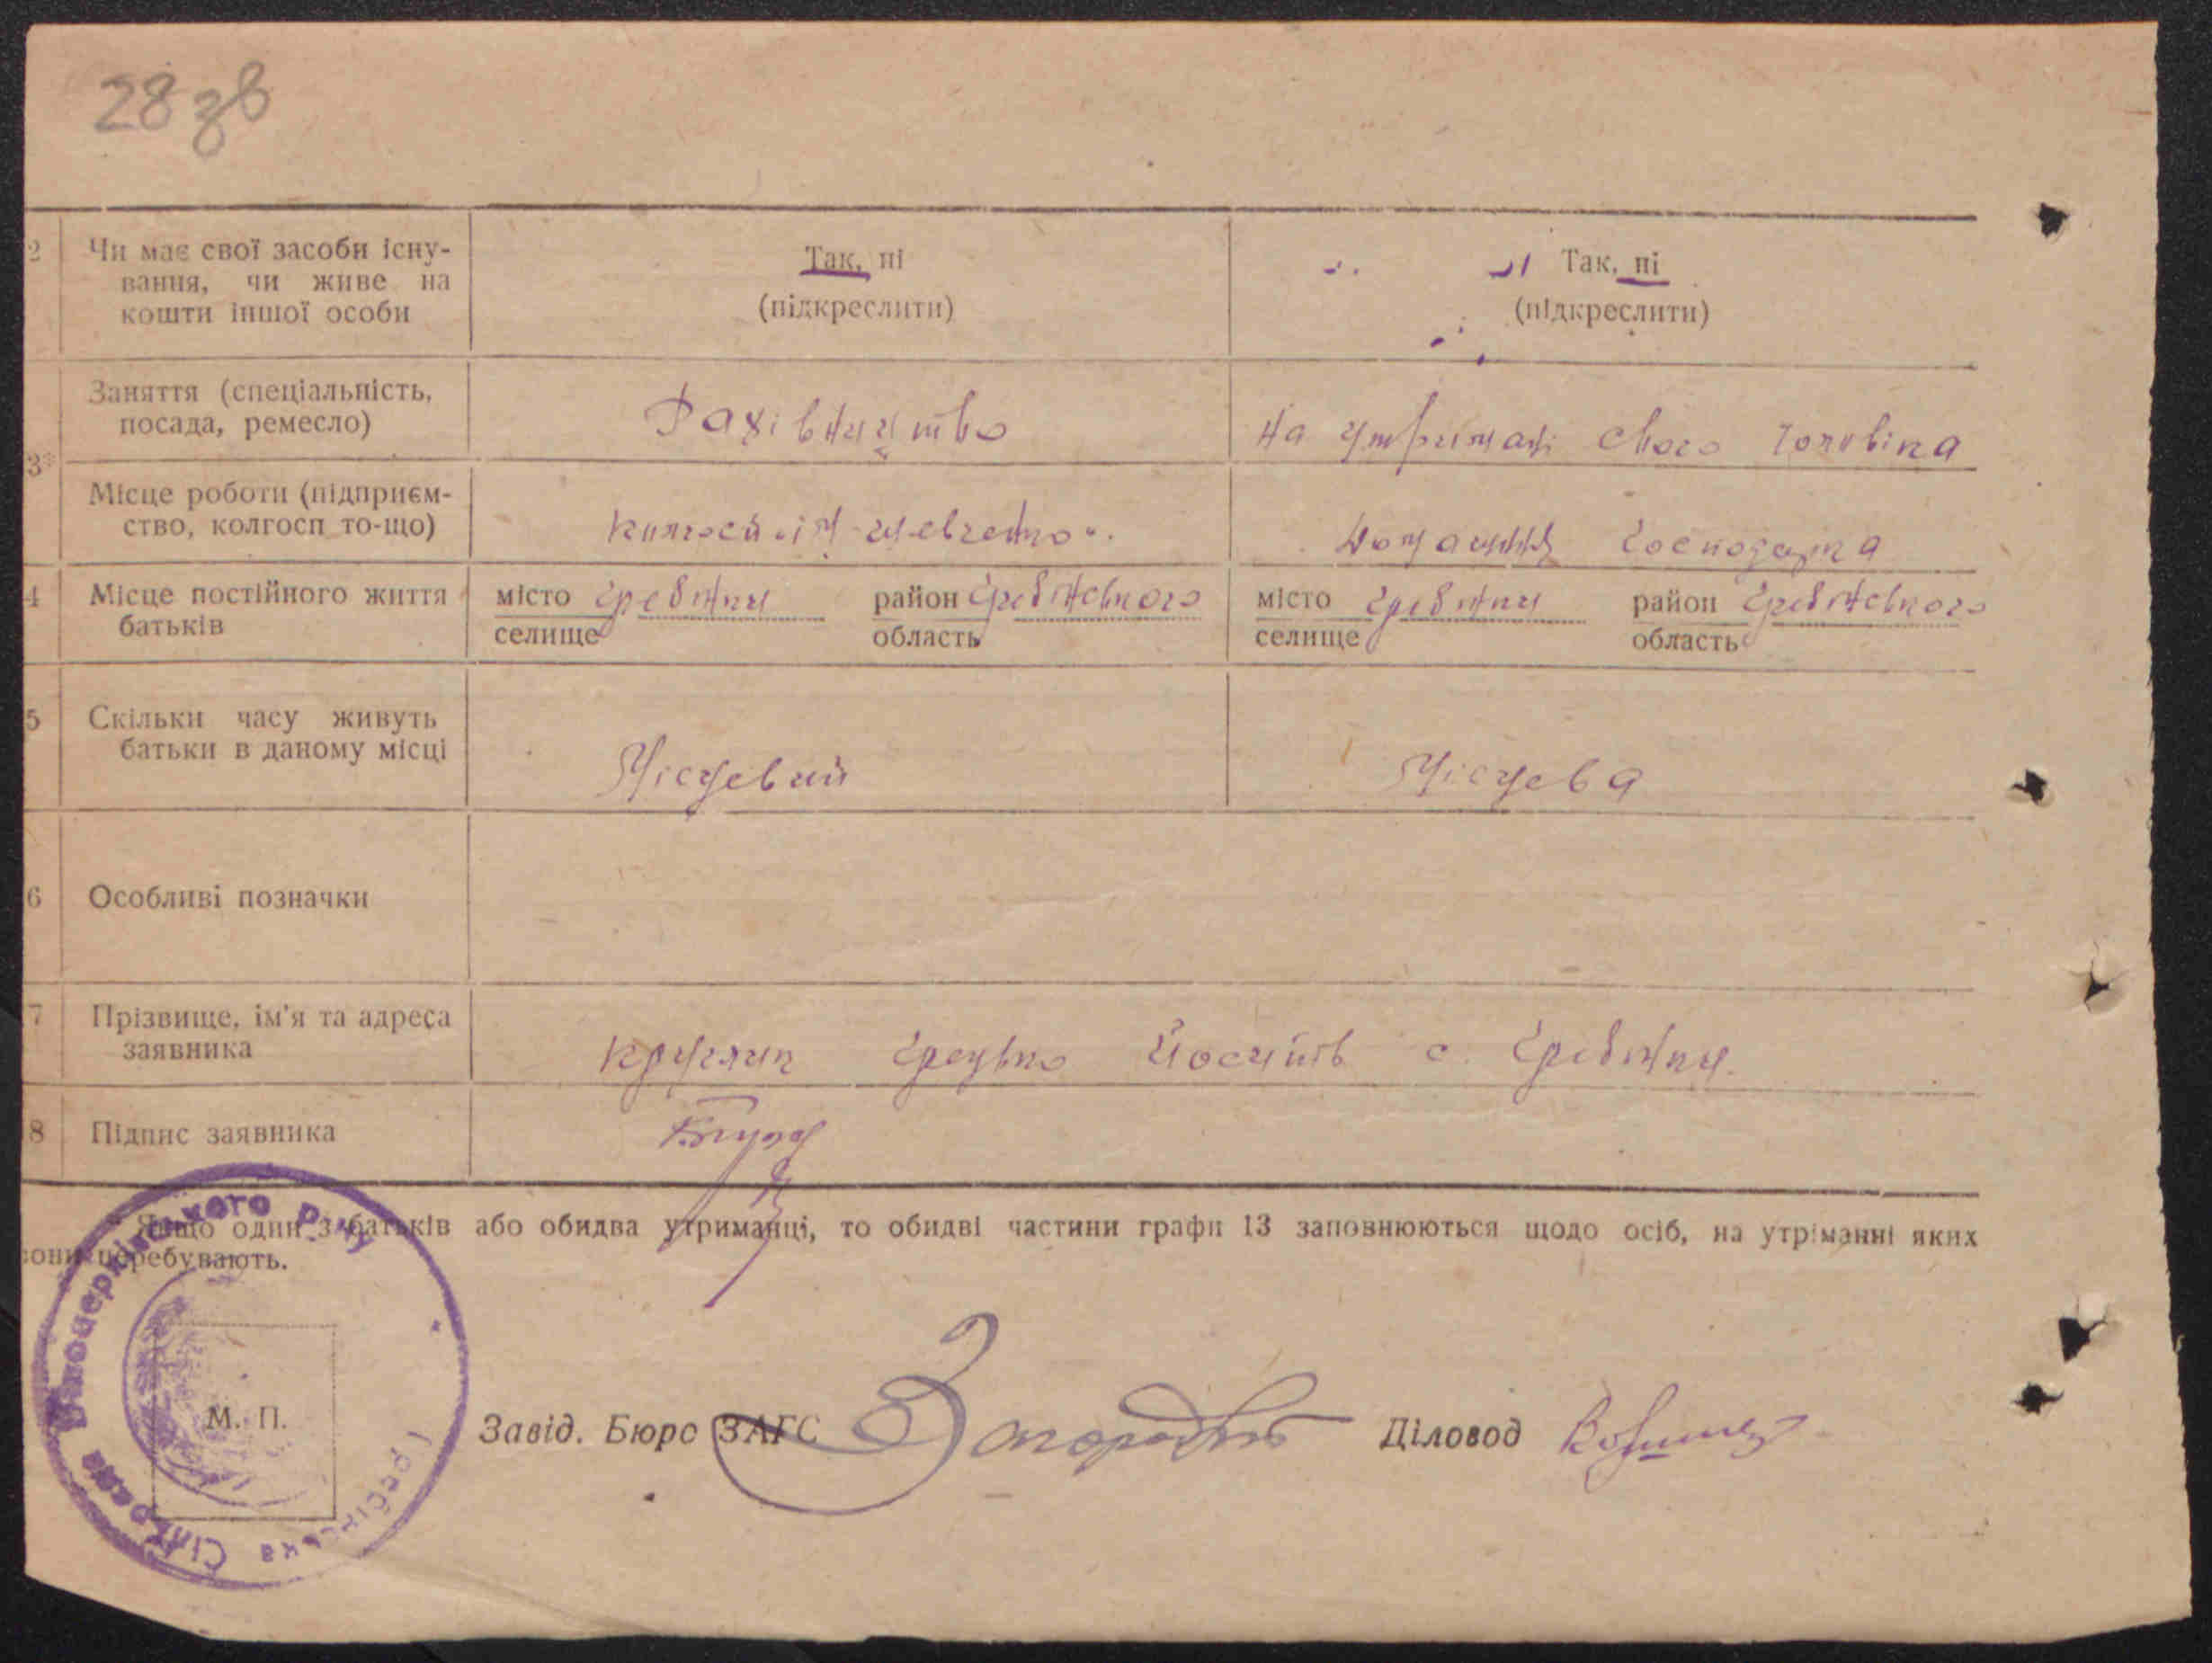 28 зв
2 Чи має свої засоби існу-
вання, чи живе на
кошти іншої особи
Так, ні
(підкреслити)
Так, ні
(підкреслити)
3* Заняття (спеціальність,
посада, ремесло)
Рахівництво
на утриманні свого чоловіка
Місце роботи (підприєм-
ство, колгосп то-що)
Колгосп "ім Шевченко".
Домашня господарка
4 Місце постійного життя
батьків
місто Гребінки район Гребінського
селище область
місто Гребінки район Гребінського
селище область
5 Скільки часу живуть
батьки в даному місці
Місцевий
Місцева
6 Особливі позначки
7 Прізвище, ім'я та адреса
заявника
Кругляк Грецько с. Гребінки.
8 Підпис заявника
* Якщо один з батьків або обидва утриманці, то обидві частини графи 13 заповнюються щодо осіб, на утріманні яких
вони перебувають.
Гребінська Сільрада Білоцерківського р-ну
М. П.
Завід. Бюро ЗАГС
Діловод